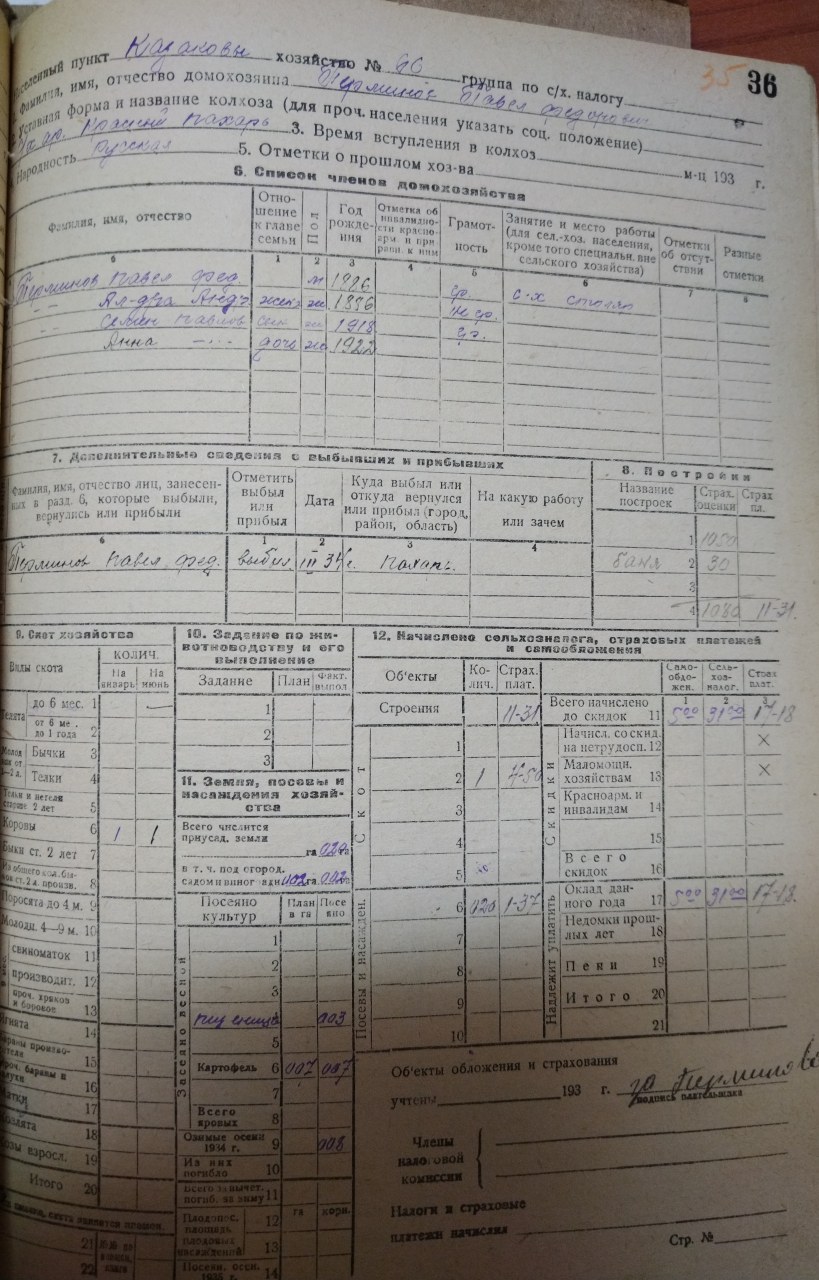 Населенный пункт Казаковы хозяйство № 66 группа по с/х. налогу
35 36
Фамилия, имя, отчество домохозяина Перминов Павел Федорович
Уставная форма и название колхоза (для проч. населения указать соц. положение)
Красный пахарь 3. Время вступления в колхоз м-ц 193 г.
Народность русская 5. Отметки о прошлом хоз-ва
6. Список членов домохозяйства
Фамилия, имя, отчество
Отно-шение к главе семьи
Пол
Год рожде-ния
Отметка об инвалидно-сти красно-арм и при-равн. к ним
Грамот-ность
Занятие и место работы (для сел.-хоз. населения, кроме того специальн. вне сельского хозяйства)
Отметки об отсут-ствии
Разные отметки
6 1 2 3 4 5 6 7 8
Перминов Павел Фед. м 1886 гр.
Ал-дра Андр. жена ж 1886 не гр.
Семен Павлов сын м 1918 гр.
Анна дочь ж 1922 гр.
7. Дополнительные сведения о выбывших и прибывших
Фамилия, имя, отчество лиц, занесен-ных в разд. 6, которые выбыли, вернулись или прибыли
Отметить выбыл или прибыл
Дата
Куда выбыл или откуда вернулся или прибыл (город, район, область)
На какую работу или зачем
6 1 2 3 4
Перминов Павел Фед. выбыл III 34 г.
8. Постройки
Название построек
Страх. оценки
Страх пл.
1 1050
баня 2 30
3
4 1080 11-31
9. Скот хозяйства
Виды скота
КОЛИЧ.
На январь
На июнь
Телята до 6 мес. 1
от 6 ме. до 1 года 2
Бычки 3
Телки 4
Телки и нетели старше 2 лет 5
Коровы 6 1 1
Быки ст. 2 лет 7
8
Поросята до 4 м. 9
Молодн. 4—9 м. 10
свиноматок 11
производит. 12
проч. хряков и боровов 13
Ягнята 14
15
Проч. бараны и валухи 16
Матки 17
Козлята 18
Козы взросл. 19
Итого 20
21
22
10. Задание по жи-вотноводству и его выполнение
Задание План Факт. выпол.
1
2
3
11. Земля, посевы и насаждения хозяй-ства
Всего числится приусад. земли га 020 га
в т. ч. под огород. садом и виноградн. 002 га 002
Посеяно культур План в га Посе яно
Засеяно весной
1
2
3
пшеница 003
5
Картофель 6 007 007
7
Всего яровых 8
Озимые осени 1934 г. 9 008
Из них погибло 10
Всего за вычет. погиб. за зиму 11
га корн.
Плодонос. площадь 12
плодовых насаждений 13
Посеян. осен. 1935 г. 14
12. Начислено сельхозналога, страховых платежей и самообложения
Об'екты Ко-лич. Страх. плат.
Строения 11-31
Скот
1
2 1 4-50
3
4
5
Посевы и насажден.
6 020 1-37
7
8
9
10
Само-обло-жен. Сель-хоз-налог. Страх плат.
1 2 3
Всего начислено до скидок 11 5 00 31 00 17-18
Скидки
Начисл. со скид. на нетрудосп. 12 ×
Маломощн. хозяйствам 13 ×
Красноарм. и инвалидам 14
15
Всего скидок 16
Надлежит уплатить
Оклад дан-ного года 17 5 00 31 00 17-18
Недоимки прош-лых лет 18
Пени 19
Итого 20
21
Об'екты обложения и страхования
учтены 193 г. за Перминова
подпись плательщика
Члены налоговой комиссии
Налоги и страховые
платежи начислил
Стр. №